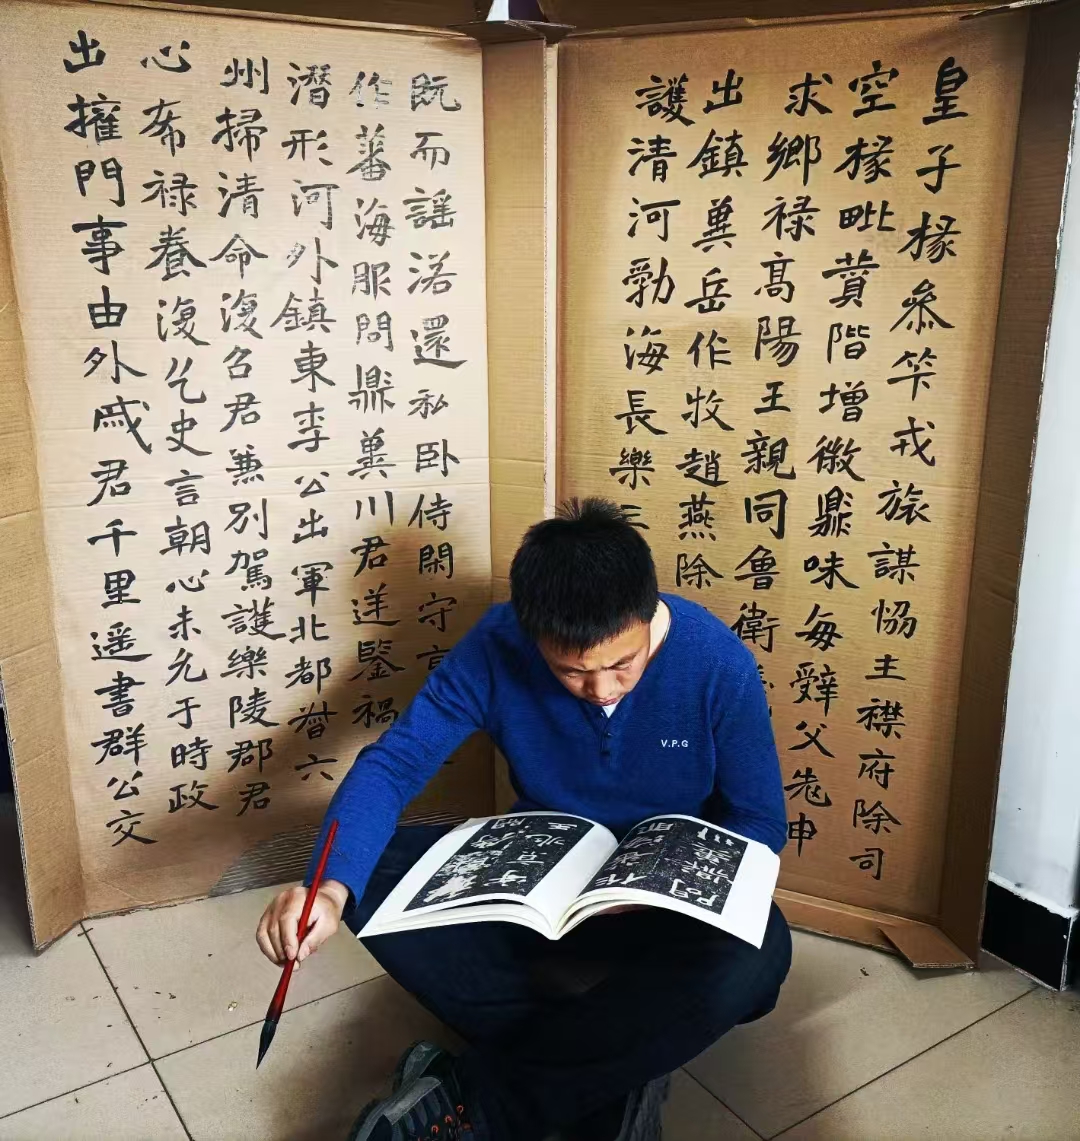 皇子掾叅竿戎旅謀恊主襟府除司
空掾毗賛階增徽鼎味每辭父老申
求鄉祿高陽王親同魯衛
出鎮冀岳作牧趙燕除
護清河勃海長樂三
既而謡渃還私卧侍閑守
作蕃海服問鼎冀川君逆鑒禍
潛形河外鎮東李公出軍北都督六
州掃清命復召君兼別駕護樂陵郡君
心希祿養復乞史言朝心未允于時政
出擁門事由外戚君千里遥書群公交
V.P.G